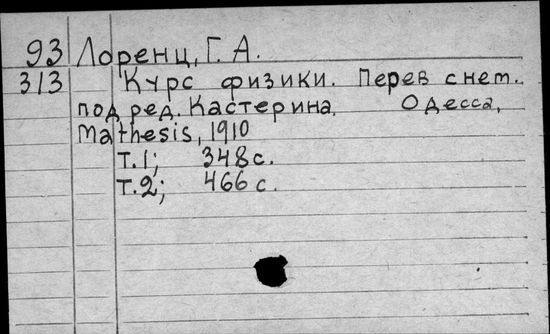 93 Лоренц, Г. А.
313 Курс физики. Перев с нем.
под ред. Кастерина. Одесса,
Mathesis, 1910
Т.1; 348 с.
Т.2; 466 с.